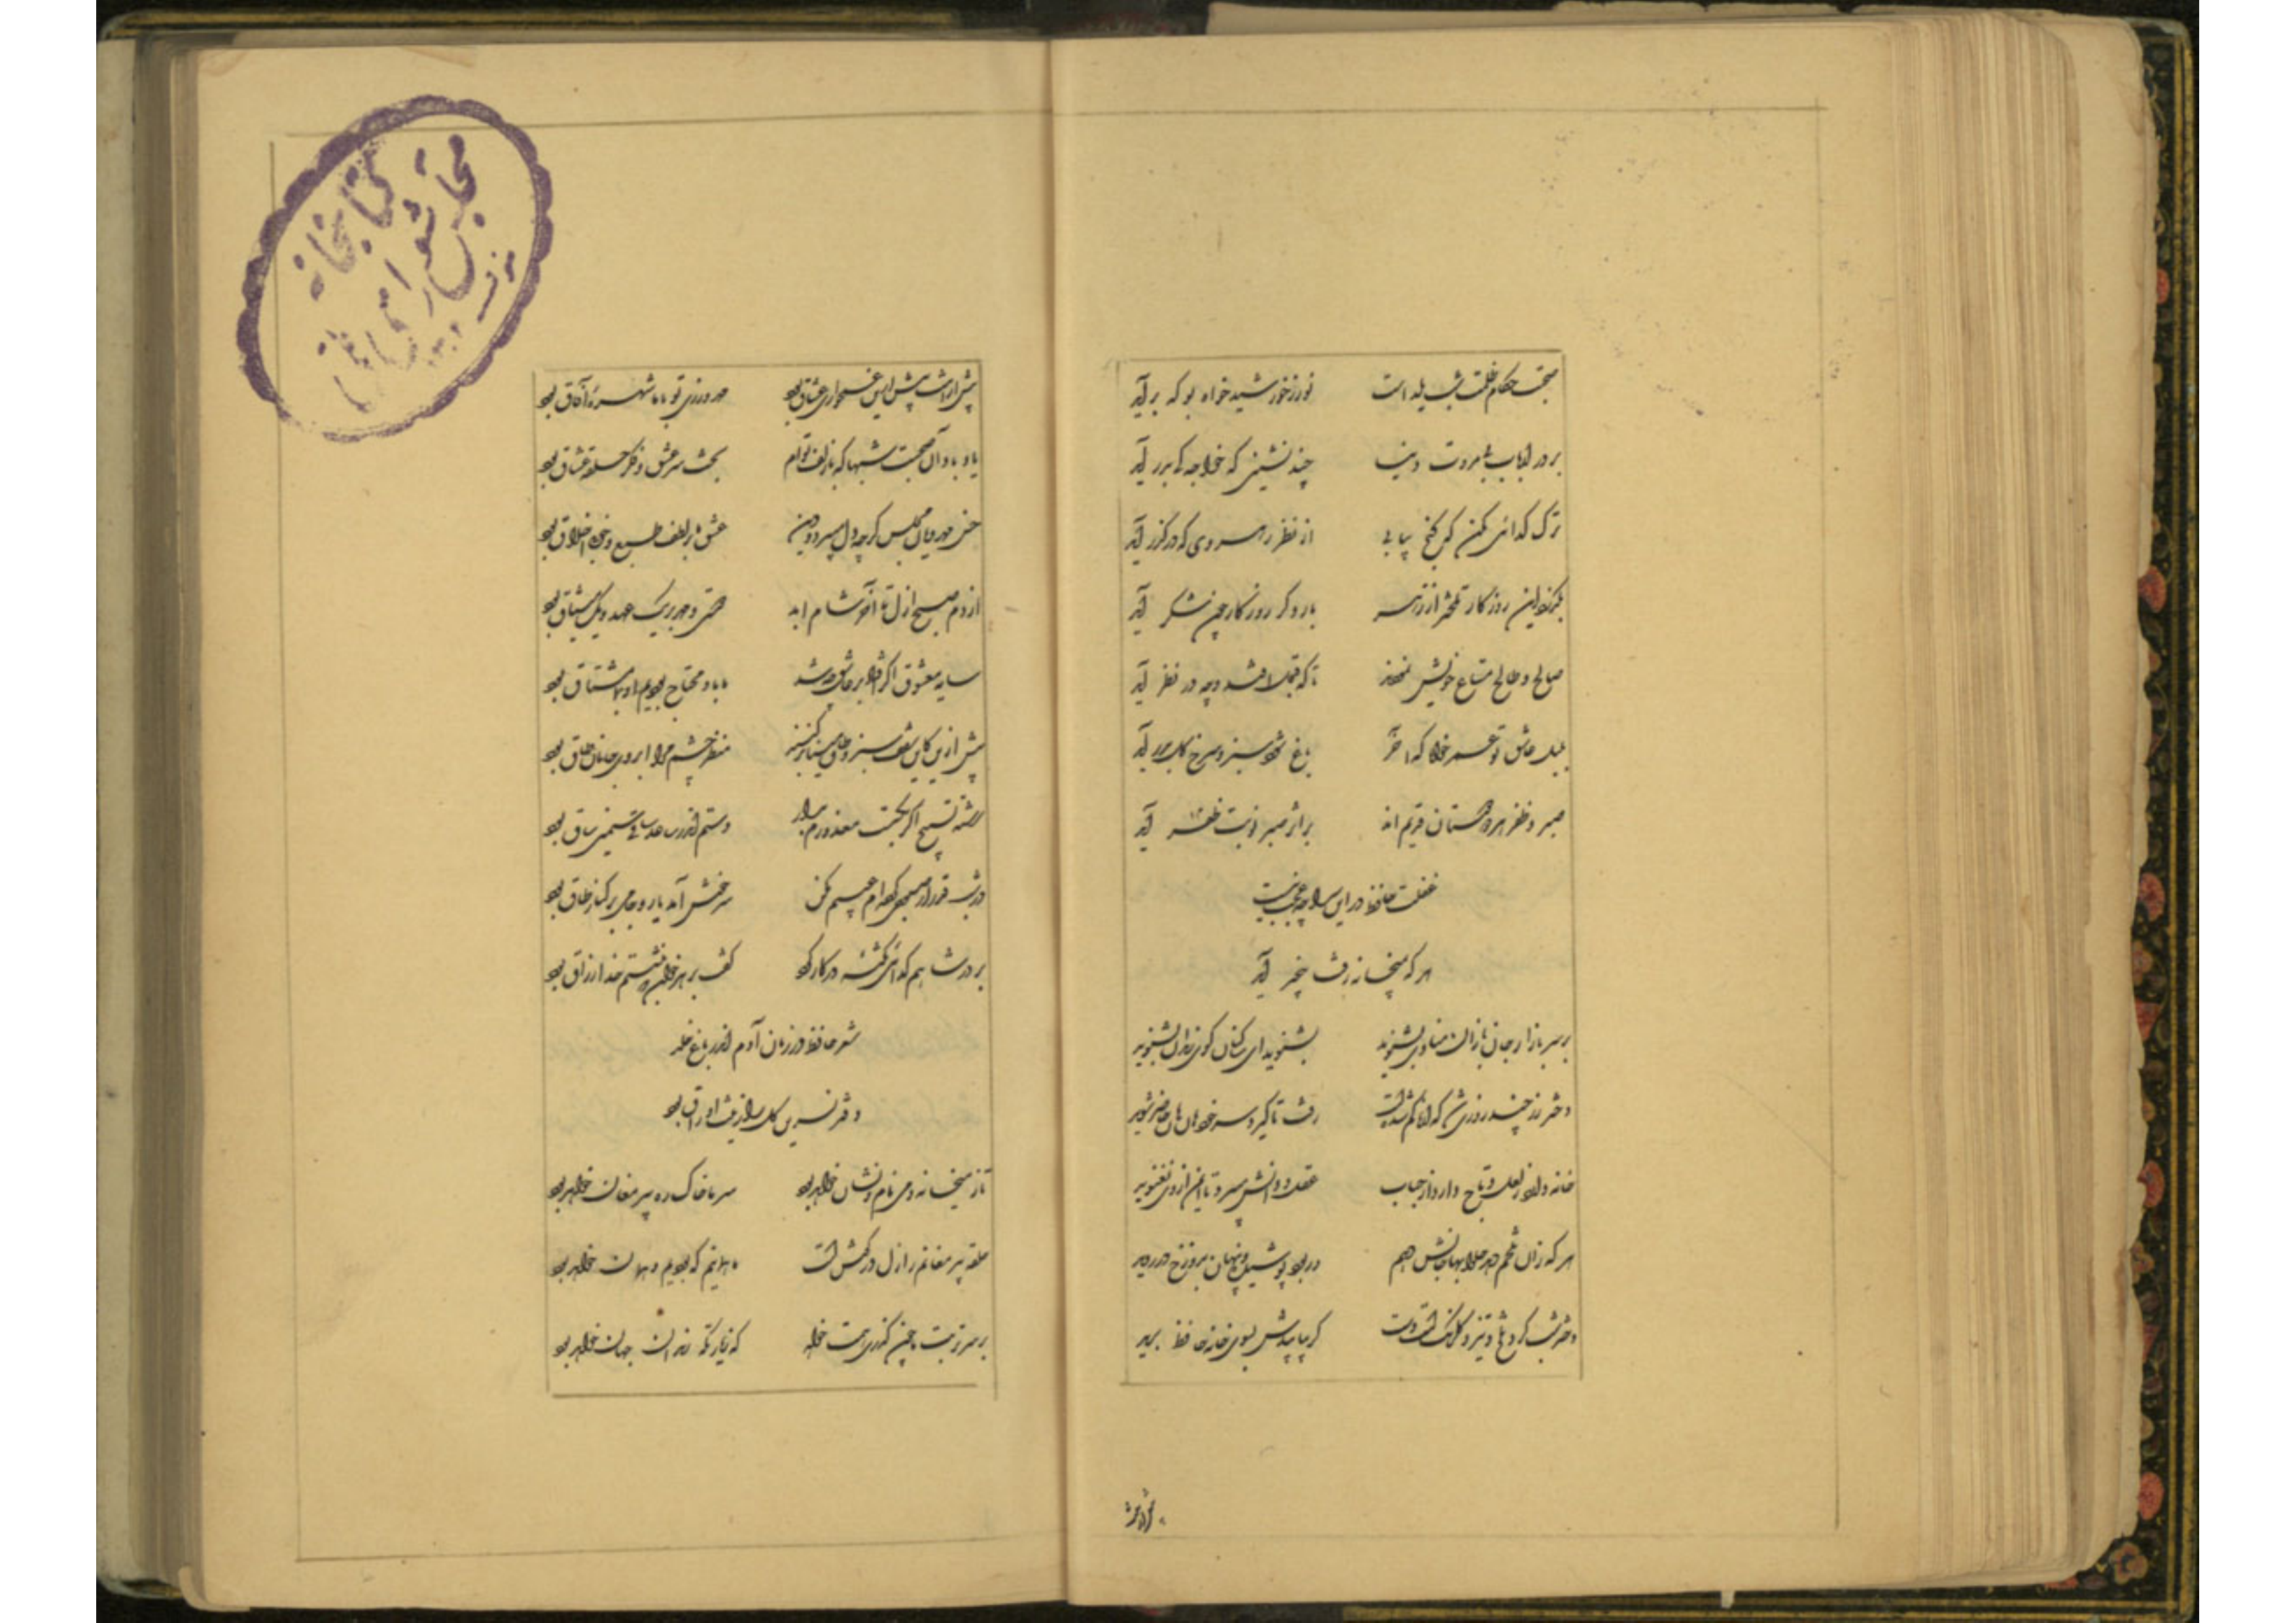 صحبت حکام ظلمت شب یلداست نور ز خورشید خواه بو که برآید
بر در ارباب بی مروت دنیا چند نشینی که خواجه کی بدر آید
ترک گدائی مکن که گنج بیابی از نظر رهروی که در گذر آید
بگذرد این روزگار تلختر از زهر بار دگر روزگار چون شکر آید
صالح و طالح متاع خویش نمودند تا که قبول افتد و چه در نظر آید
بلبل عاشق تو عمر خواه که آخر باغ شود سبز و سرخ گل ببر آید
صبر و ظفر هر دو دوستان قدیم اند بر اثر صبر نوبت ظفر آید
غفلت حافظ در این سراچه عجب نیست
هر که بمیخانه رفت بیخبر آید
بر سر بازار جانبازان منادی بشنوید بشنوید ای ساکنان کوی رندان بشنوید
دختر رز چند روزی شد که از ما گم شدست رفت تا گیرد سر خود هان و هان حاضر شوید
خانه دارد ز لعل و تاج دارد از حباب عقل و دانش برد و تا ایمن از وی نغنوید
هر که زان تلخم دهد حلوا بها جانش دهم ور بود پوشیده و پنهان بدوزخ در روید
دختر شب گرد و تیز و گلرنگ است و مست گر بیابیدش بسوی خانه حافظ برید
پیش ازینت بیش ازین غمخواری عشاق بود مهرورزی تو با ما شهره آفاق بود
یاد باد آن صحبت شبها که با زلف توام بحث سر عشق و ذکر حلقه عشاق بود
حسن مهرویان مجلس گرچه دل میبرد و دین عشق ما بر لطف طبع و خوبی اخلاق بود
از دم صبح ازل تا آخر شام ابد دوستی و مهر بر یک عهد و یک میثاق بود
سایه معشوق اگر افتاد بر عاشق چه شد ما باو محتاج بودیم او بما مشتاق بود
پیش ازین کاین سقف سبز و طاق مینا برکشند منظر چشم مرا ابروی جانان طاق بود
رشته تسبیح اگر بگسست معذورم بدار دستم اندر ساعد ساقی سیمین ساق بود
در شب قدر ار صبوحی کرده ام عیبم مکن سرخوش آمد یار و جامی بر کنار طاق بود
بر در شاهم گدائی نکته در کار کرد گفت بر هر خوان که بنشستم خدا رزاق بود
شعر حافظ در زمان آدم اندر باغ خلد
دفتر نسرین و گل را زینت اوراق بود
تا ز میخانه و می نام و نشان خواهد بود سر ما خاک ره پیر مغان خواهد بود
حلقه پیر مغانم ز ازل در گوش است ما همانیم که بودیم و همان خواهد بود
بر سر تربت ما چون گذری همت خواه که زیارتگه رندان جهان خواهد بود
کتابخانه
مجلس شورای ملی